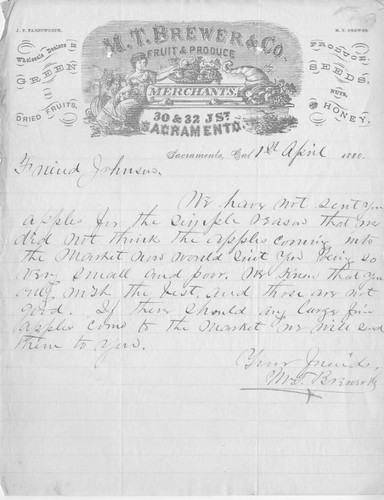 J. F. FARNSWORTH.
M. T. BREWER.
M. T. BREWER & CO.
FRUIT & PRODUCE
MERCHANTS,
30 & 32 J ST.
SACRAMENTO.
Wholesale Dealers in
GREEN
AND
DRIED FRUITS,
PRODUCE
SEEDS,
NUTS,
HONEY,
Sacramento, Cal 1st April 1880.
Friend Johnson.
We have not sent you
apples for the simple reason that we
did not think the apples coming into
the Market now would suit you being so
very small and poor. We know that you
only wish the best, and those are not
good. If there should any large fair
apples come to the Market we will send
them to you.
Your friend,
M. T. Brewer